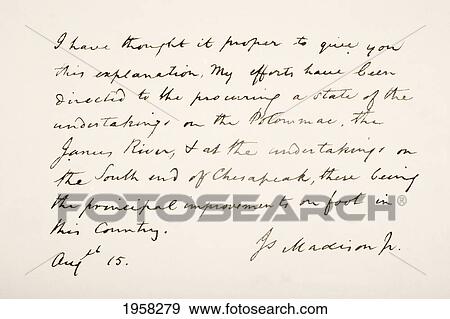 I have thought it proper to give you
this explanation. My efforts have been
directed to the procuring a state of the
undertakings on the Potowmac, the
James River, & at the undertakings on
the South end of Chesapeak, these being
the principal improvements on foot in
this Country.
Js Madison Jr.
Augst 15.
FOTOSEARCH®
1958279 www.fotosearch.com